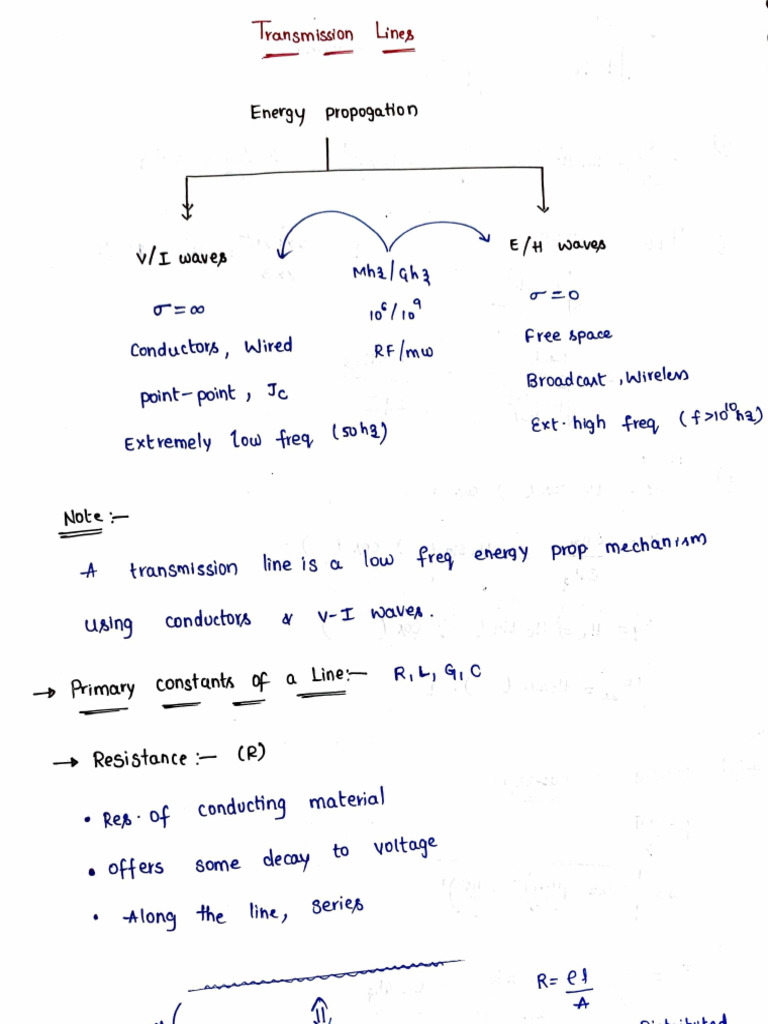 Transmission Lines
Energy propogation
V/I waves
σ = ∞
Conductors, Wired
point-point, Jc
Extremely low freq (50hz)
Mhz/Ghz
10⁶/10⁹
RF/mw
E/H waves
σ = 0
Free space
Broadcast, Wireless
Ext. high freq (f>10¹⁰hz)
Note:-
A transmission line is a low freq energy prop mechanism
using conductors & V-I waves.
→ Primary constants of a Line:- R, L, G, C
→ Resistance:- (R)
• Res. of conducting material
• offers some decay to voltage
• Along the line, series
R = ρl/A
Distributed